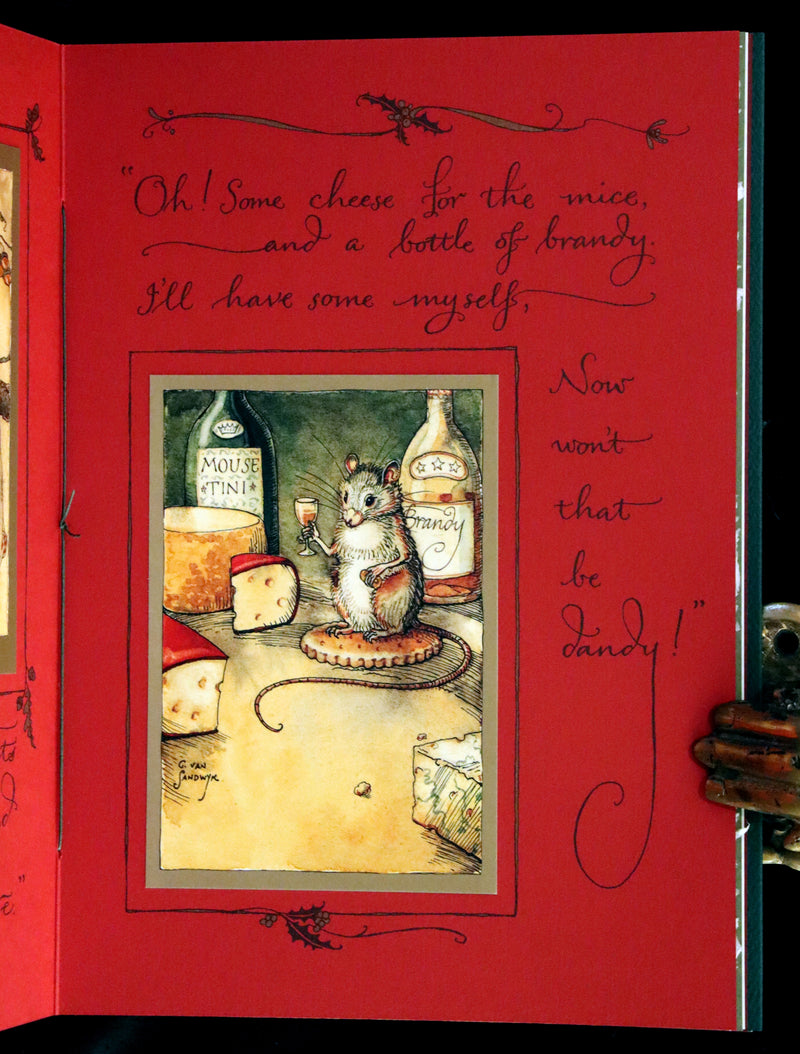 "Oh! Some cheese for the mice,
and a bottle of brandy.
I'll have some myself,
Now
won't
that
be
dandy!"
MOUSE
TINI
Brandy
C. VAN
SANDWYK